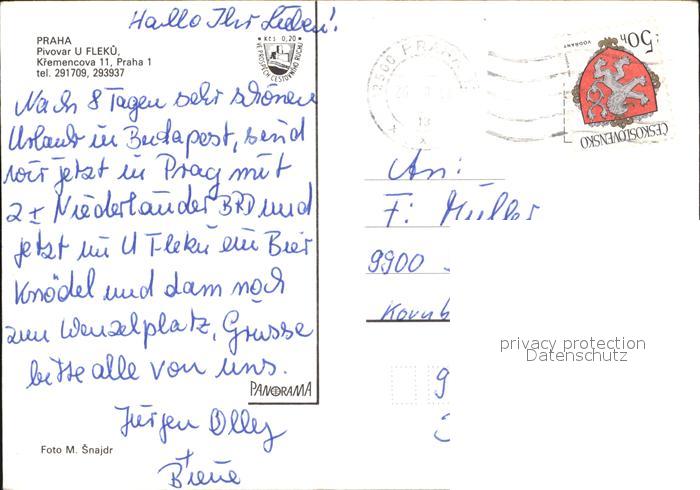 Hallo Ihr Lieben!
PRAHA
Pivovar U FLEKŮ,
Křemencova 11, Praha 1
tel. 291709, 293937
Kčs 0,20
VE PROSPĚCH CESTOVNÍHO RUCHU
Nach 8 Tagen sehr schönen
Urlaub in Budapest, sind
wir jetzt in Prag mit
2 ± Niederlander BRD und
jetzt im U Fleků ein Bier
Knödel und dann noch
zum Wenzelplatz, Grüsse
bitte alle von uns.
PANORAMA
Jürgen Olley
+
Biene
Foto M. Šnajdr
PRAHA
50h
VOBRANY
ČESKOSLOVENSKO
An:
F: Müller
9900
privacy protection
Datenschutz
9